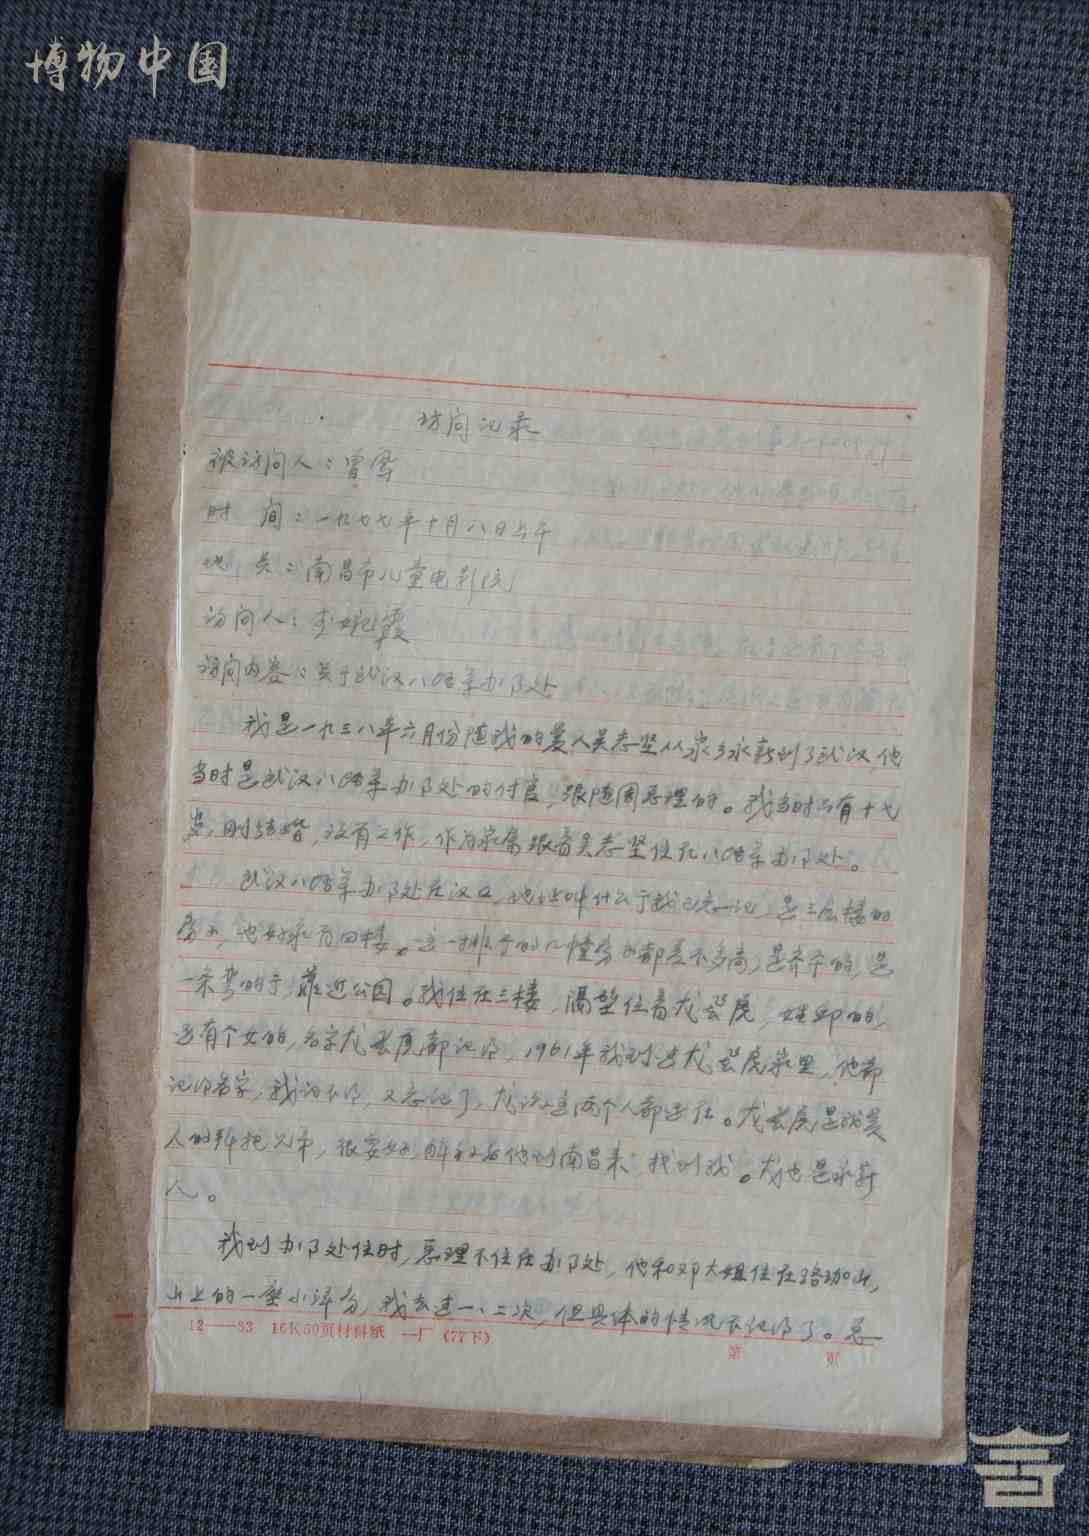 博物中国
访问记录
被访问人：曾雪
时 间：一九七七年十月八日上午
地 点：南昌市儿童电影院
访问人：李婉霞
访问内容：关于武汉八路军办门处
我是一九三八年六月份随我的爱人吴志坚从家乡永新到了武汉，他
当时是武汉八路军办门处的付官，跟随周总理的。我当时只有十七
岁，刚结婚，没有工作，作为家属跟着吴志坚住在八路军办门处。
武汉八路军办门处在汉口，地址叫什么于我已忘记，是三层楼的
房子，也好象有四楼。这一排于的几幢房子都差不多高，是齐平的，是
一条弯的于，靠近公园。我住在三楼，隔壁住着龙飞虎，姓邱的，
还有个女的，名字龙飞虎都记得，1961年我到过龙飞虎家里，他都
记得名字，我记不得，又忘记了，龙说这两个人都还在。龙飞虎是我爱
人的拜把兄弟，很要好，解放后他到南昌来，找到我。龙也是永新
人。
我到办门处住时，总理不住在办门处，他和邓大姐住在珞珈山，
山上的一座小洋房，我去过一、二次，但具体的情况不记得了。总
12——83 16K50页材料纸 一厂（77下）
第 页